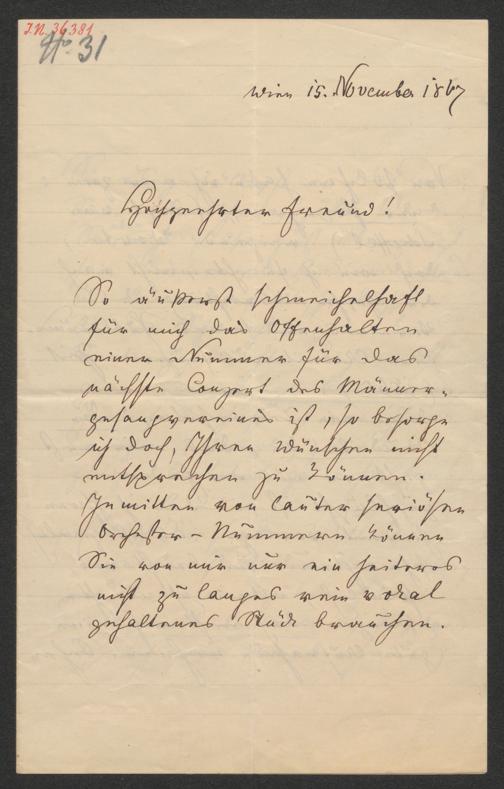 I.N. 36381
No 31
Wien 15. November 1867
Hochgeehrter Freund!
So äußerst schmeichelhaft
für mich das Offenhalten
einer Nummer für das
nächste Conzert des Männer-
gesangvereines ist, so besorge
ich doch, Ihren Wünschen nicht
entsprechen zu können.
Inmitten von lauter seriösen
Orchester-Nummern können
Sie von mir nur ein heiteres
nicht zu langes rein vokal
gehaltenes Stück brauchen.